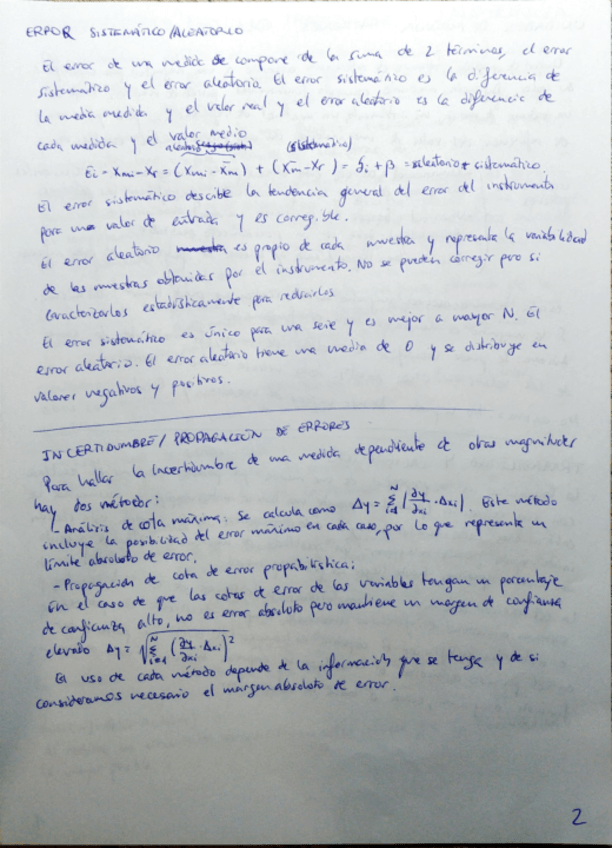 ERROR SISTEMÁTICO/ALEATORIO
El error de una medida se compone de la suma de 2 términos, el error
sistematico y el error aleatorio. El error sistemático es la diferencia de
la media medida y el valor real y el error aleatorio es la diferencia de
cada medida y el valor medio
(sistemático)
Ei = Xmi - Xr = (Xmi - X̄m) + (X̄m - Xr) = δi + β = aleatorio + sistemático.
El error sistemático describe la tendencia general del error del instrumento
para un valor de entrada y es corregible.
El error aleatorio es propio de cada muestra y representa la variabilidad
de las muestras obtenidas por el instrumento. No se pueden corregir pero si
caracterizarlos estadísticamente para reducirlos
El error sistemático es único para una serie y es mejor a mayor N. El
error aleatorio. El error aleatorio tiene una media de 0 y se distribuye en
valores negativos y positivos.
INCERTIDUMBRE / PROPAGACIÓN DE ERRORES
Para hallar la incertidumbre de una medida dependiente de otras magnitudes
hay dos métodos:
- Análisis de cota máxima: se calcula como Δy = Σ_{i=1}^{N} |∂y/∂xi · Δxi|. Este método
incluye la posibilidad del error máximo en cada caso, por lo que representa un
límite absoluto de error.
- Propagación de cota de error probabilística:
En el caso de que las cotas de error de las variables tengan un porcentaje
de confianza alto, no es error absoluto pero mantiene un margen de confianza
elevado Δy = √(Σ_{i=1}^{N} (∂y/∂xi · Δxi)²)
El uso de cada método depende de la información que se tenga y de si
consideramos necesario el margen absoluto de error.
2